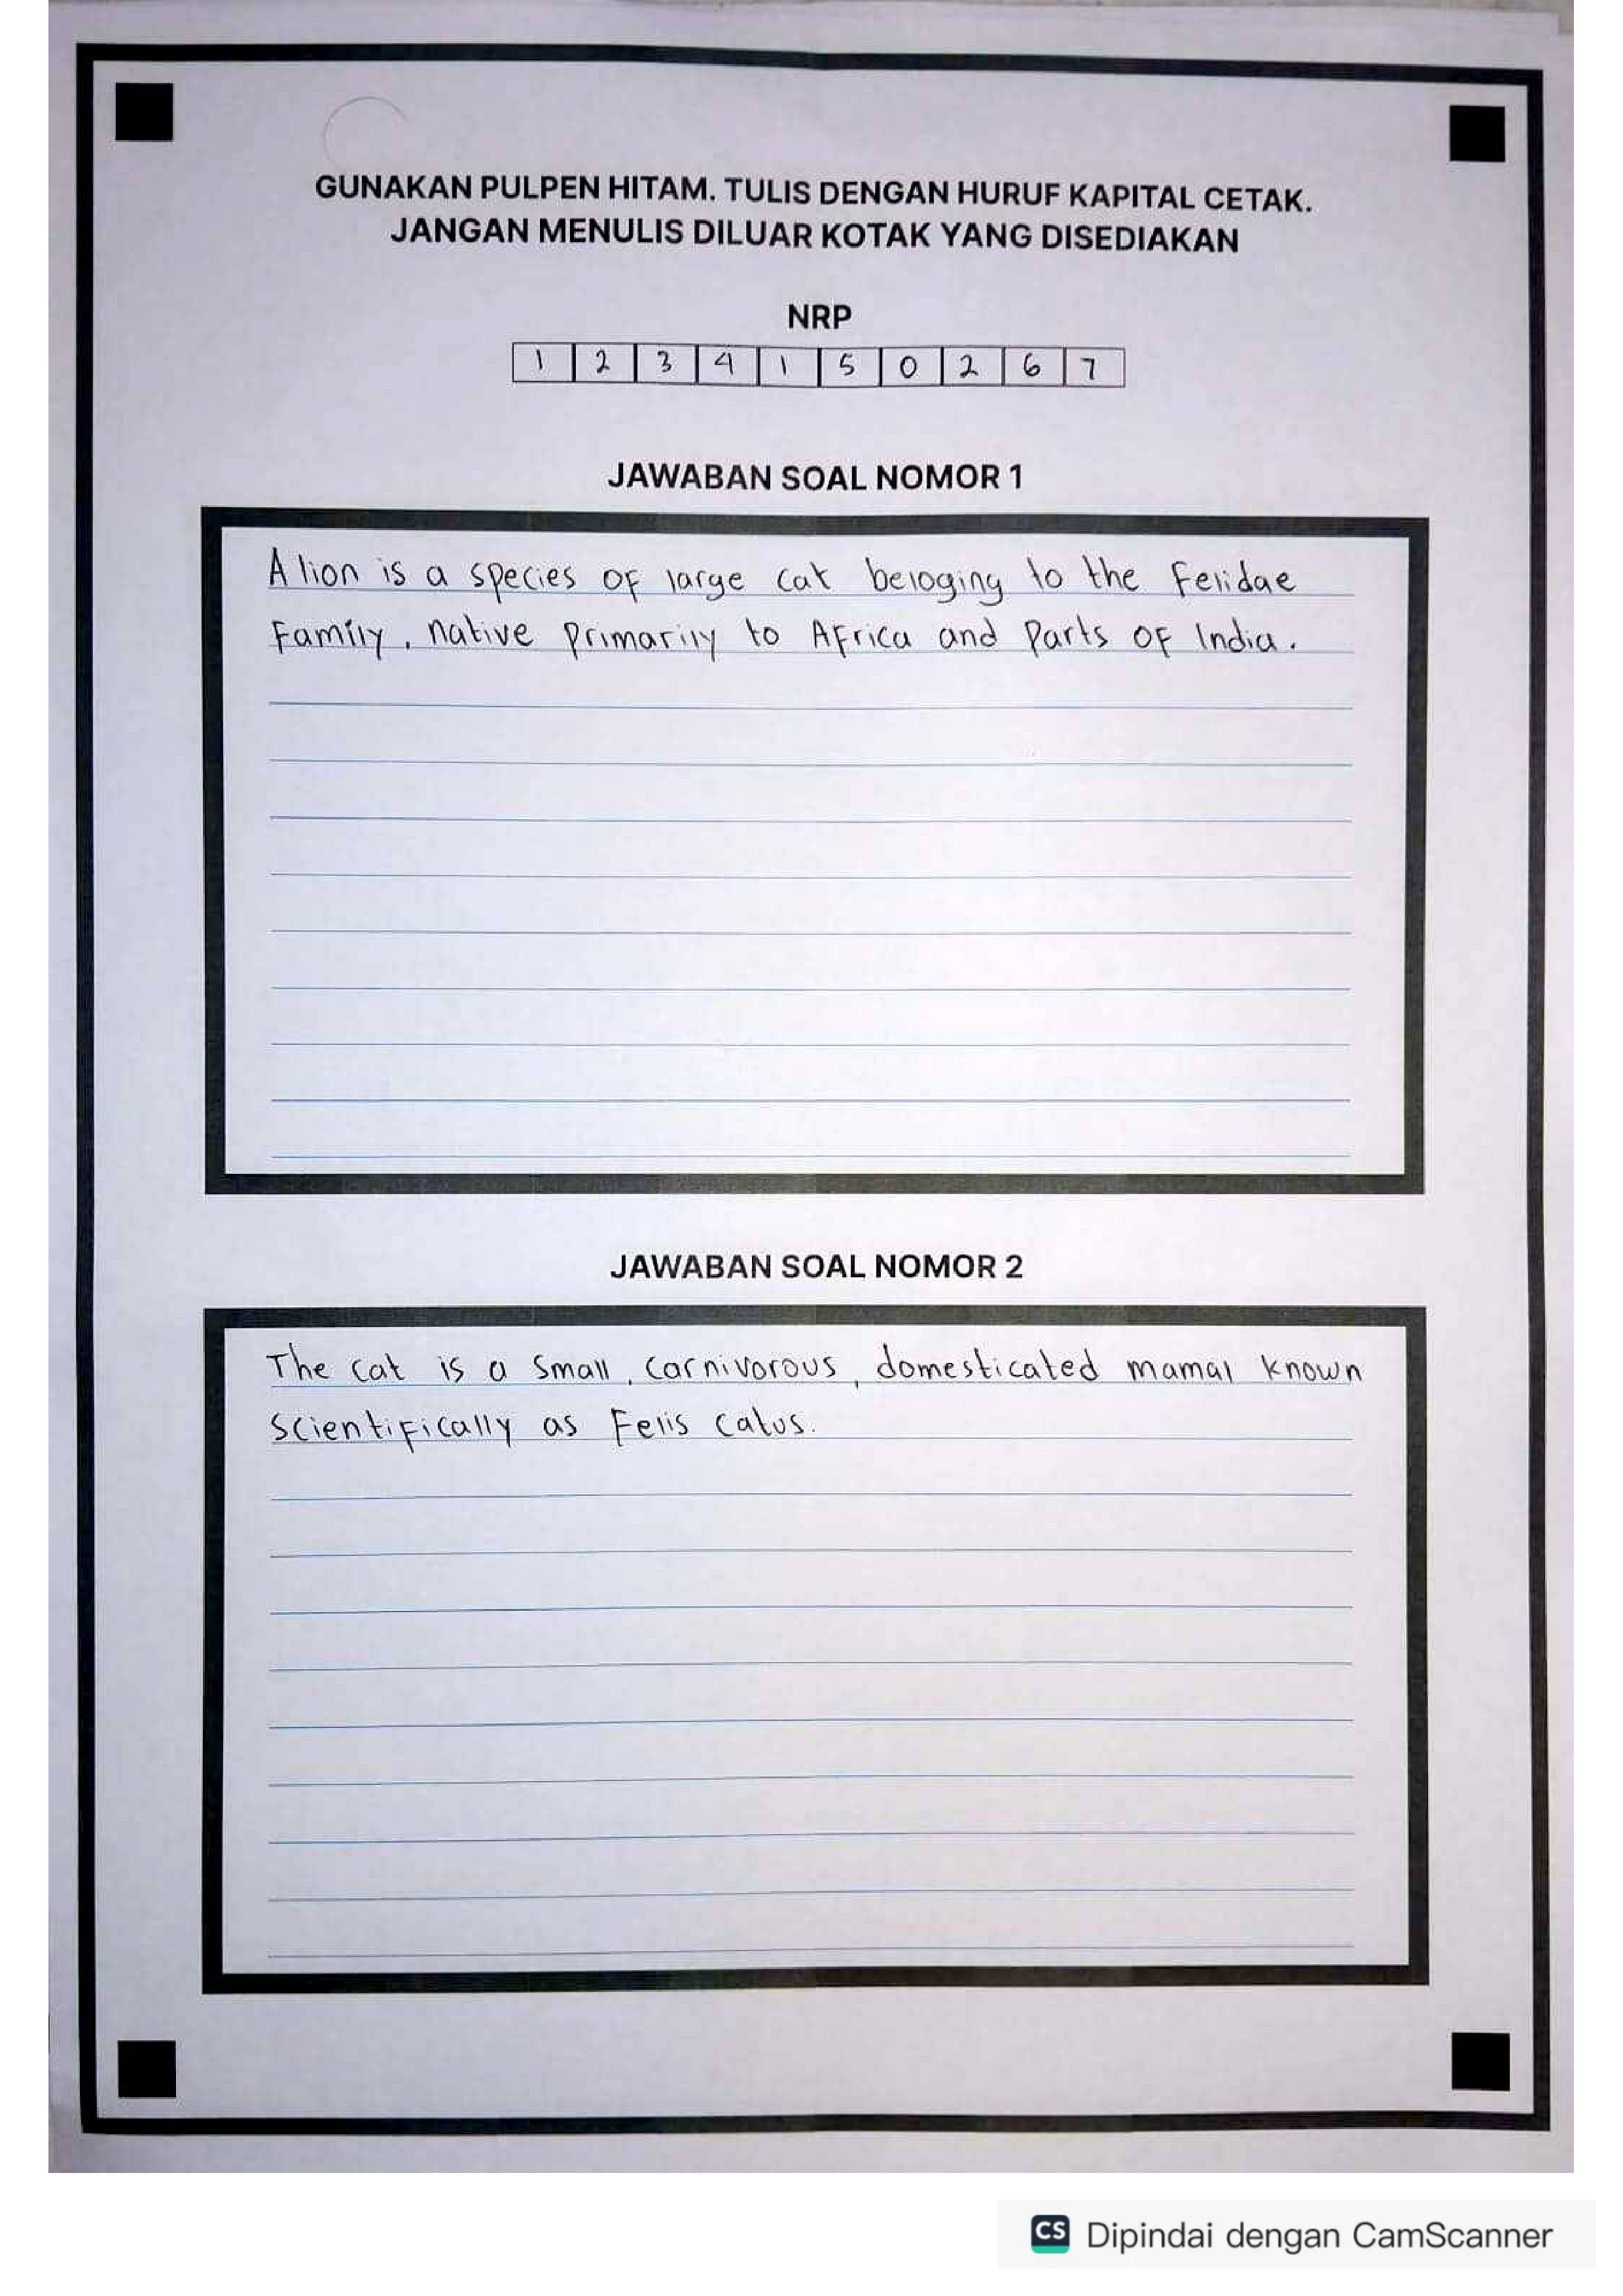 GUNAKAN PULPEN HITAM. TULIS DENGAN HURUF KAPITAL CETAK.
JANGAN MENULIS DILUAR KOTAK YANG DISEDIAKAN
NRP
1 2 3 4 1 5 0 2 6 7
JAWABAN SOAL NOMOR 1
A lion is a species of large cat beloging to the Felidae
Family, native primarily to Africa and Parts of India.
JAWABAN SOAL NOMOR 2
The cat is a small, carnivorous, domesticated mamal known
scientifically as Felis catus.
CS Dipindai dengan CamScanner